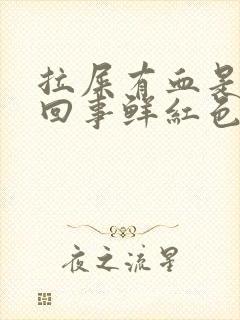 拉屎有血是
回事鲜红色
夜之流星